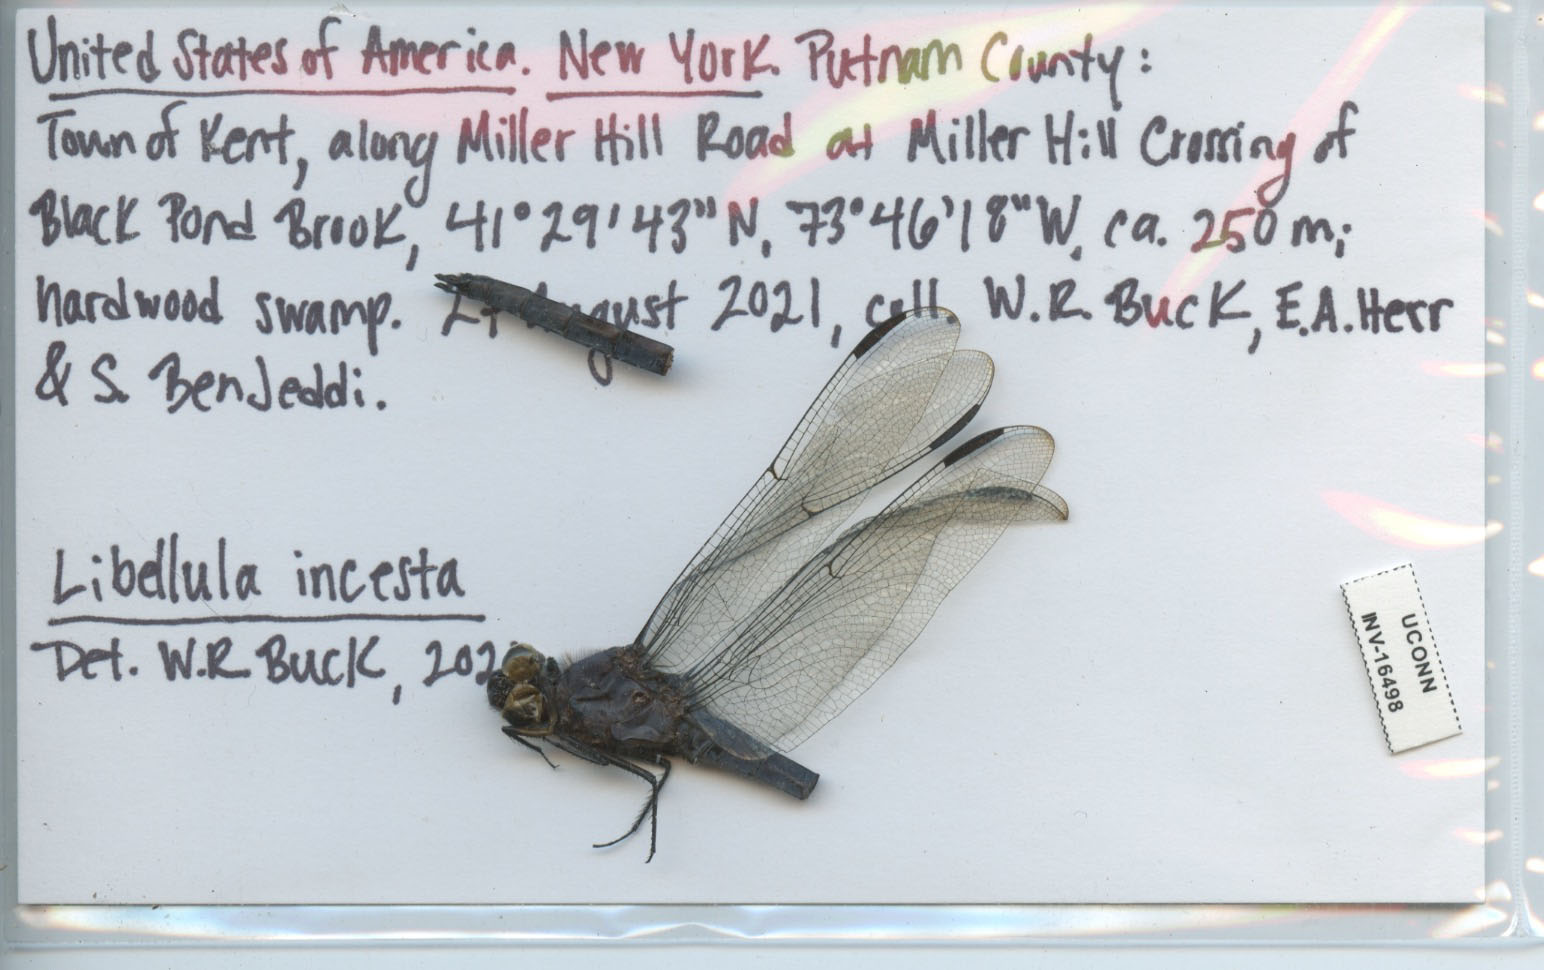 United States of America. New York. Putnam County:
Town of Kent, along Miller Hill Road at Miller Hill Crossing of
Black Pond Brook, 41°29'43"N, 73°46'18"W, ca. 250 m;
hardwood swamp. August 2021, coll. W.R. Buck, E.A. Herr
& S. BenJeddi.
Libellula incesta
Det. W.R. Buck,
UCONN
INV-16498